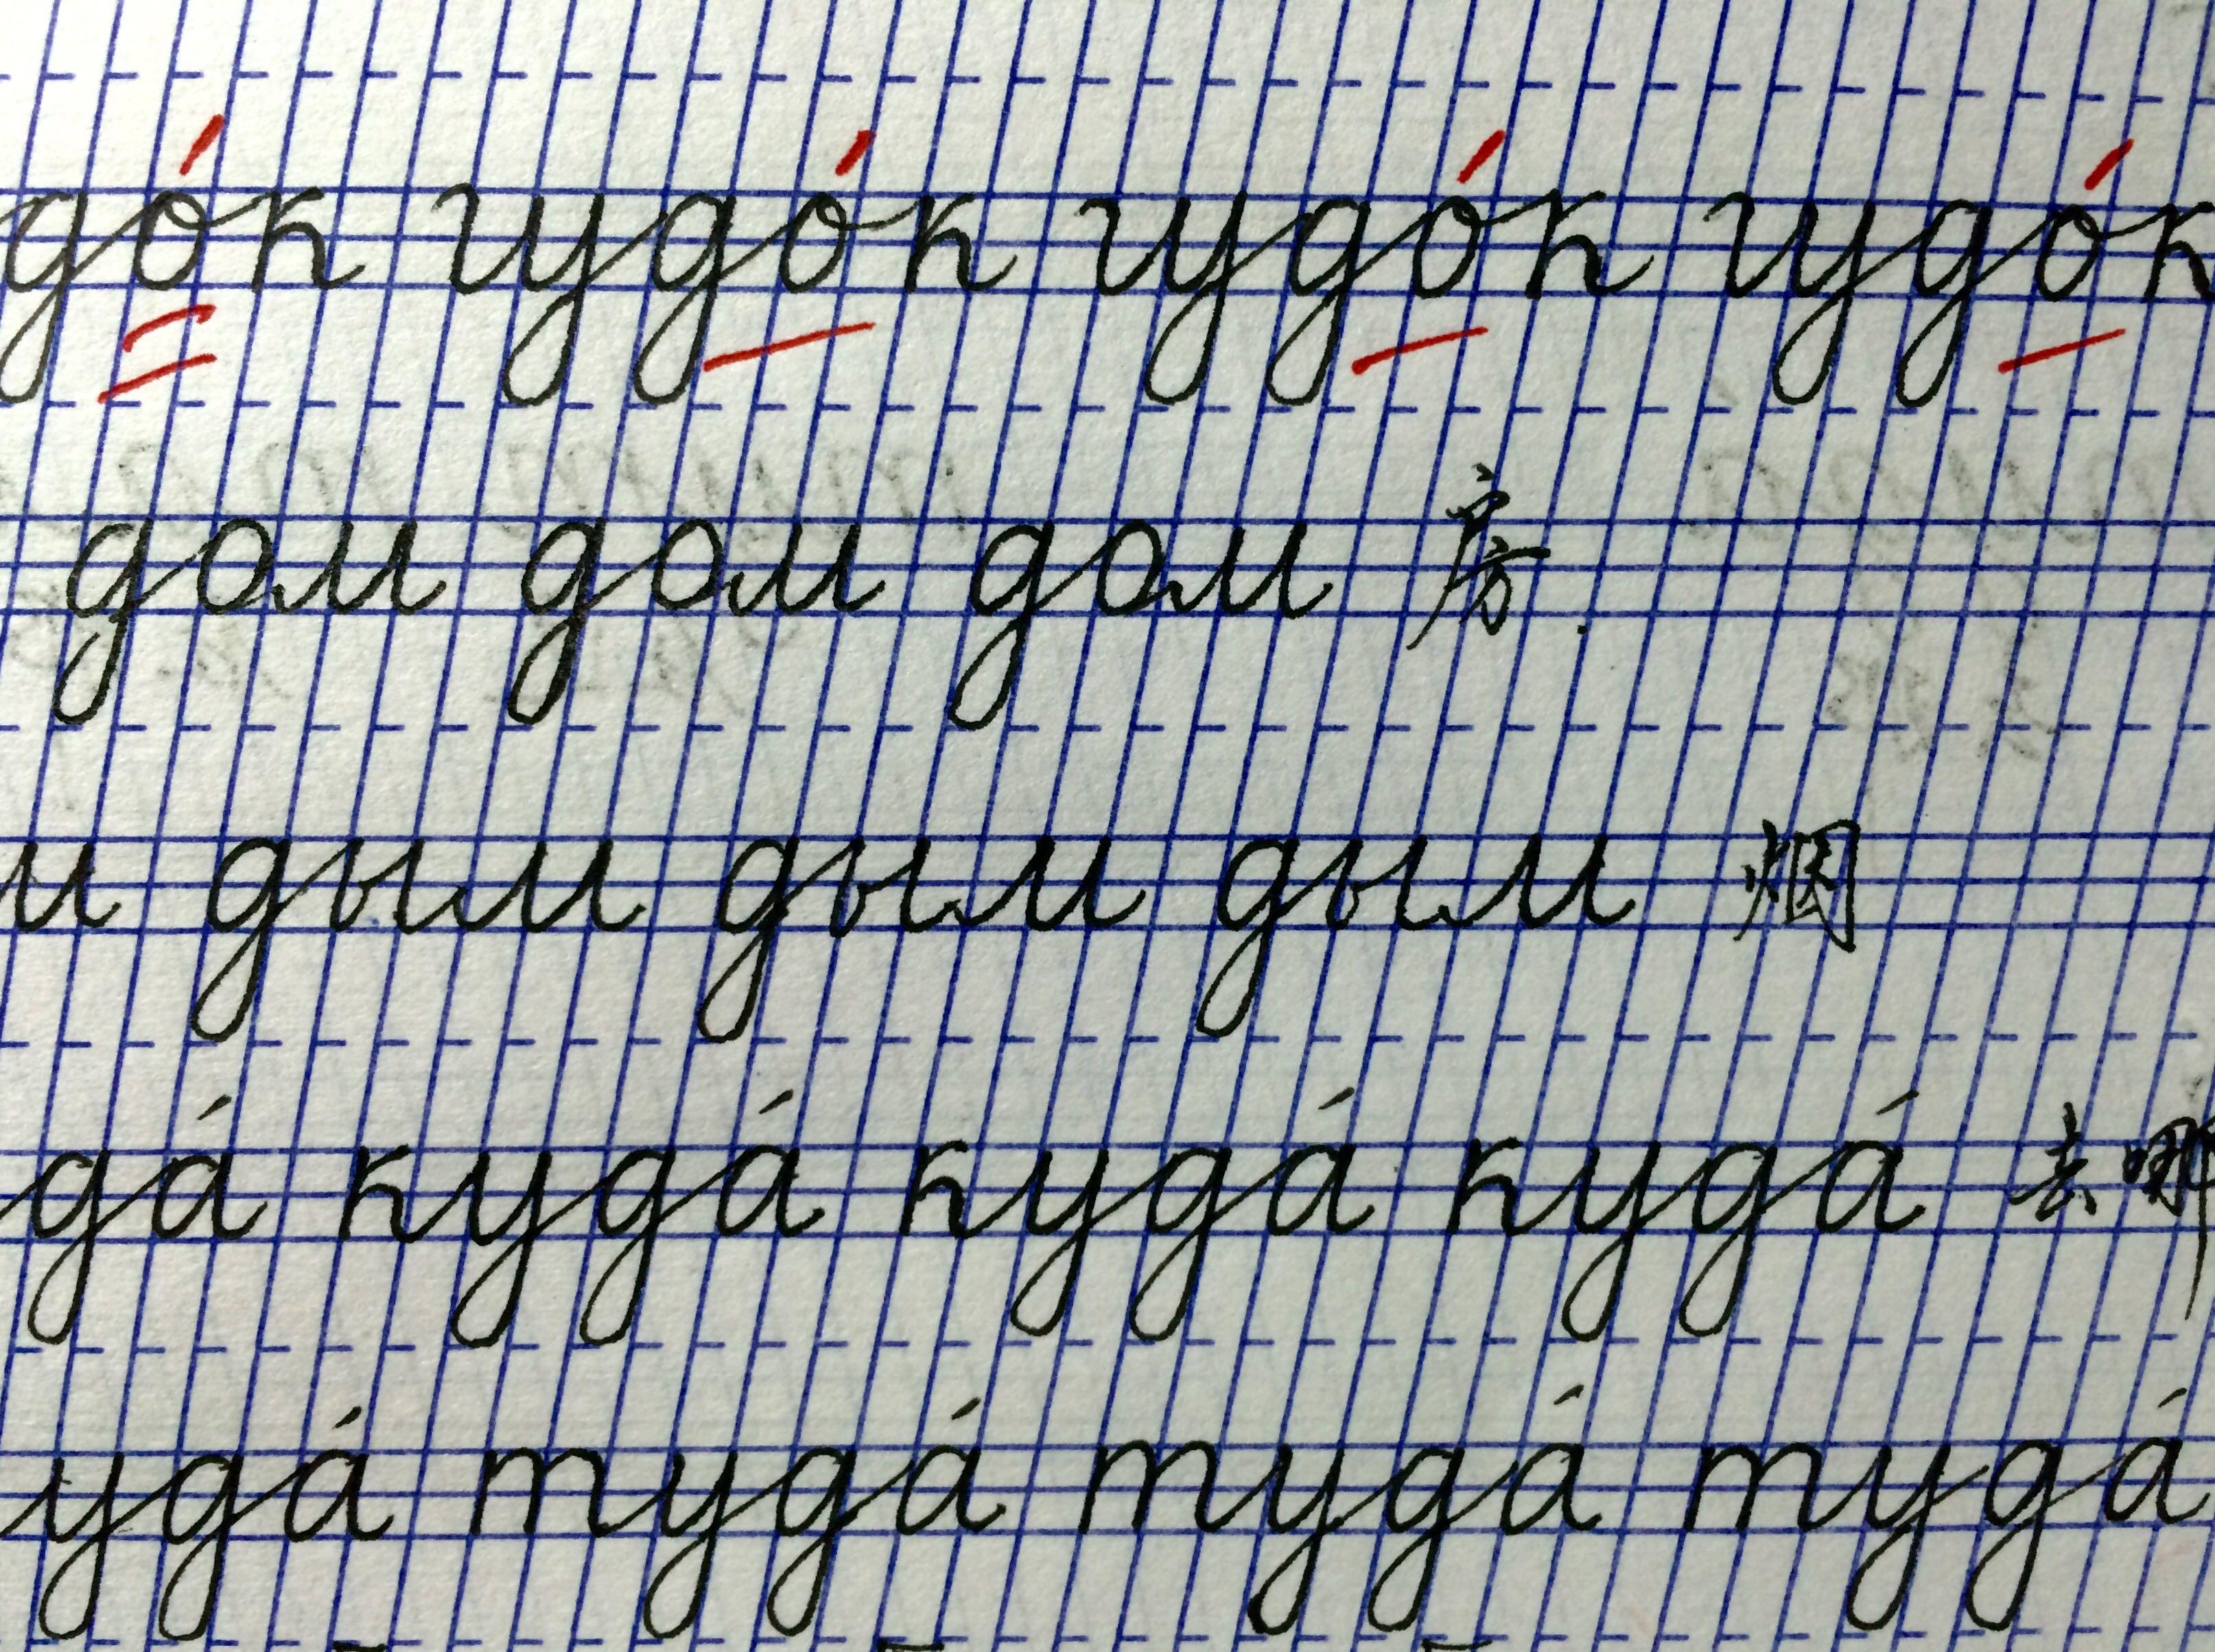 гудо́к гудо́к гудо́к
дом дом дом 房.
дым дым дым 烟
куда́ куда́ куда́ 去哪
туда́ туда́ туда́